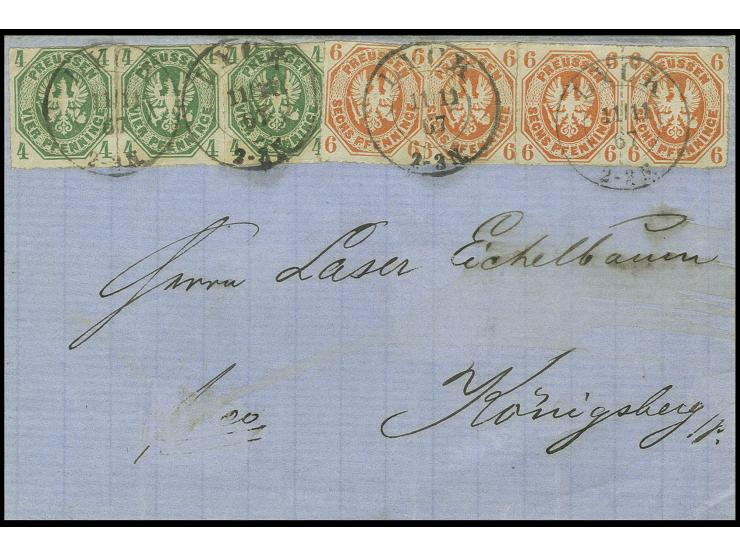 4 4 4 4 4 4 6 6 6 6 6 6 6 6
PREUSSEN PREUSSEN PREUSSEN PREUSSEN PREUSSEN PREUSSEN PREUSSEN
VIER PFENNINGE VIER PFENNINGE VIER PFENNINGE SECHS PFENNINGE SECHS PFENNINGE SECHS PFENNINGE SECHS PFENNINGE
4 4 4 4 4 4 6 6 6 6 6 6 6 6
11 11
67
2-3 N.
Herrn Laser Eichelbaum
Königsberg i/p.